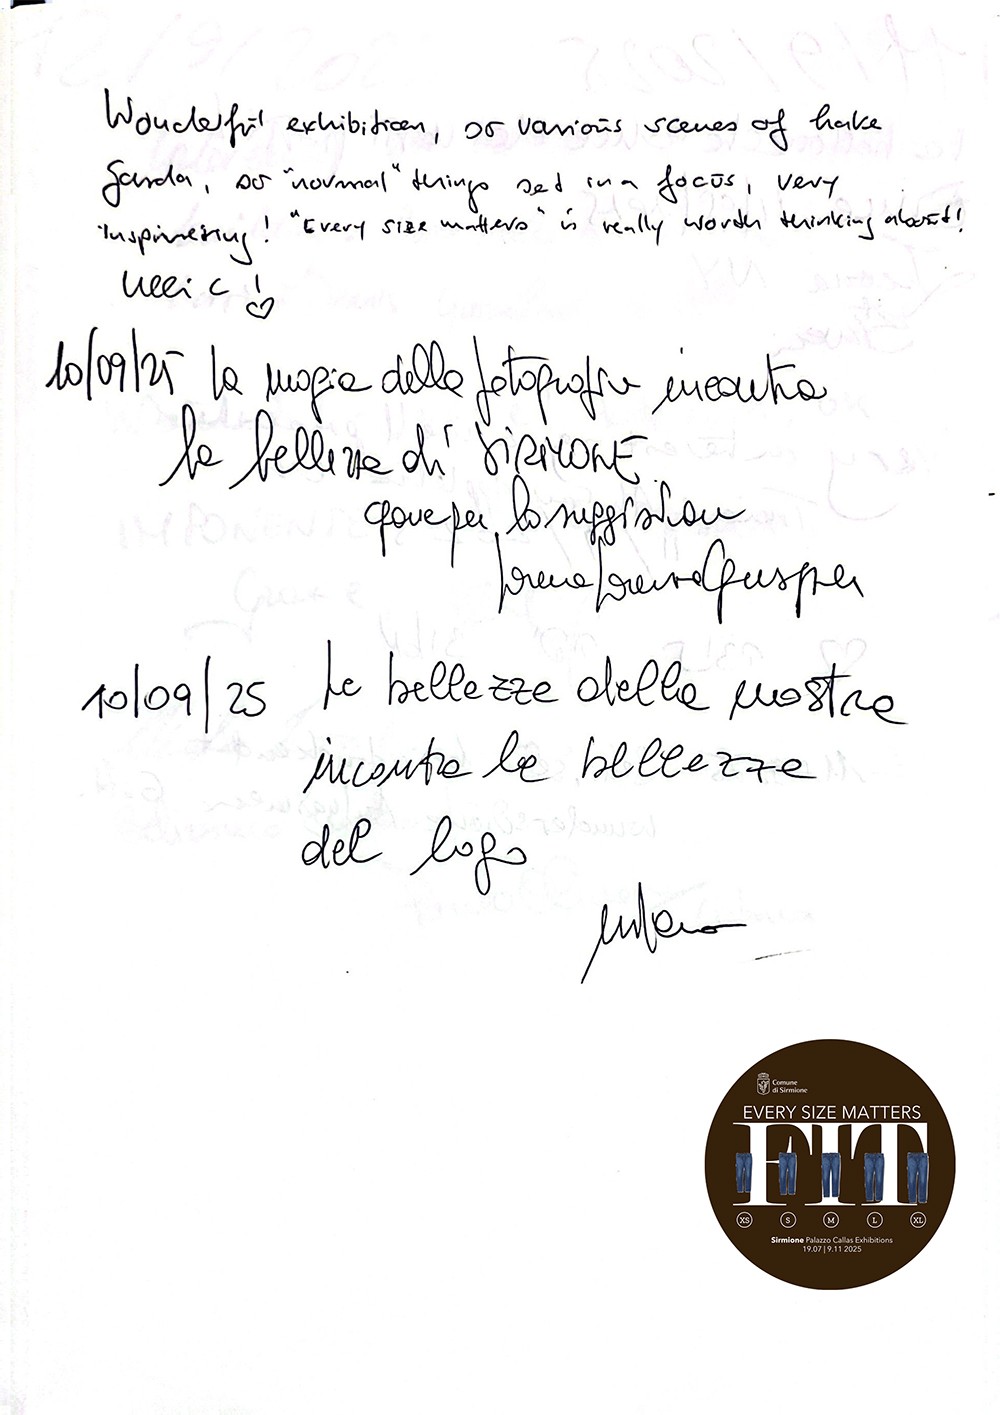 Wonderful exhibition, so various scenes of Lake
Garda, so "normal" things set in a focus, very
inspirering! "Every size matters" is really worth thinking about!
Ulli C!
10/09/25 La magia della fotografia incontra
la bellezza di SIRMIONE
per la suggistion
10/09/25 La bellezza della mostra
incontra la bellezza
del logo
Comune
di Sirmione
EVERY SIZE MATTERS
FIT
XS S M L XL
Sirmione Palazzo Callas Exhibitions
19.07 | 9.11 2025